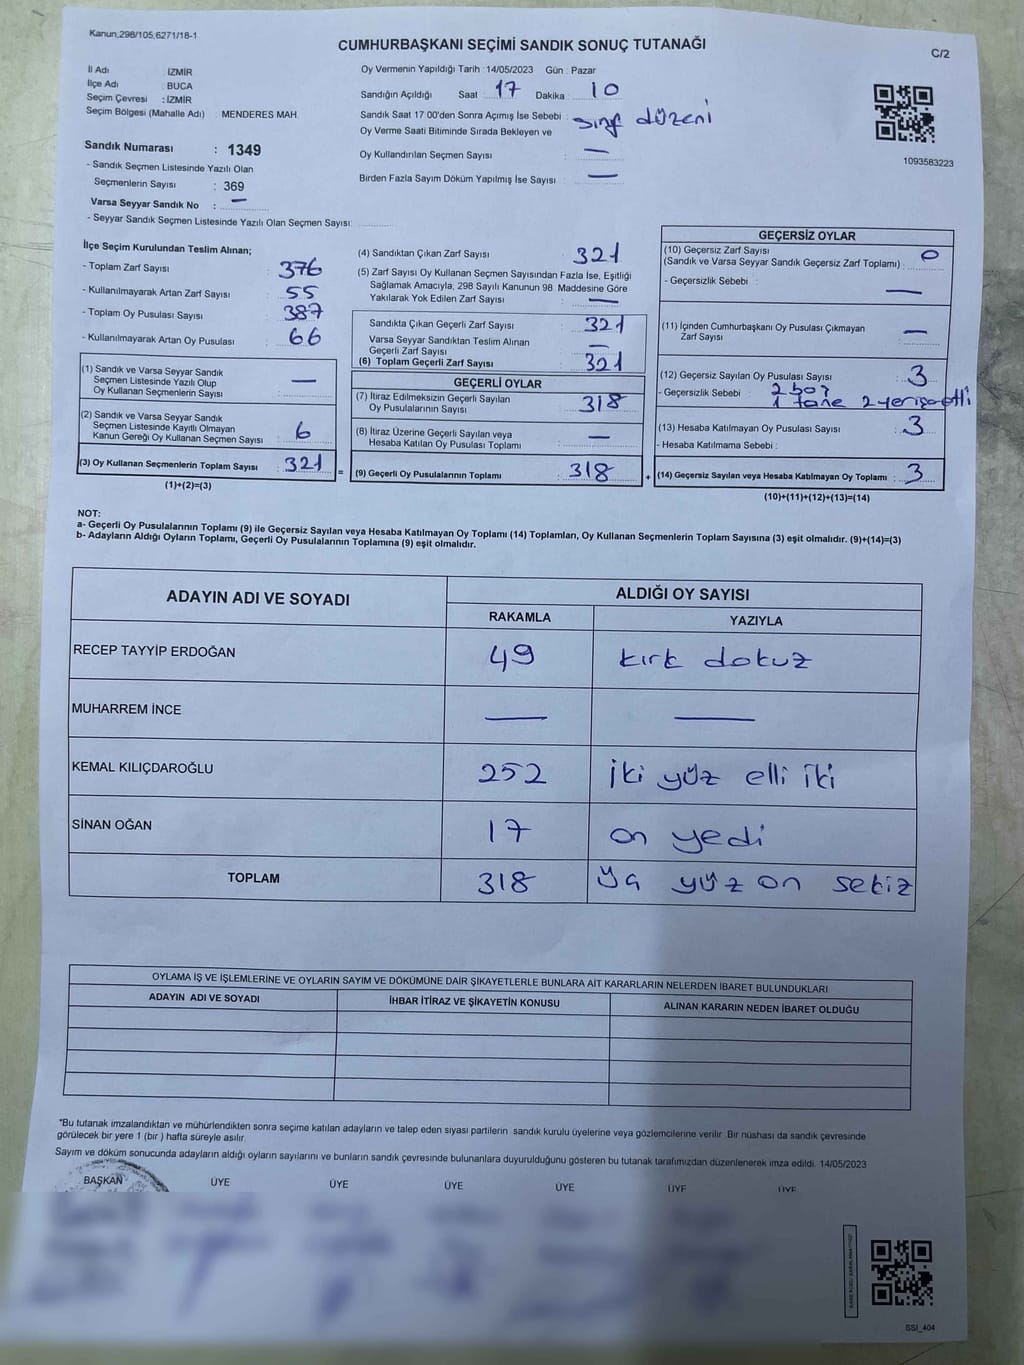 Kanun,298/105,6271/18-1
CUMHURBAŞKANI SEÇİMİ SANDIK SONUÇ TUTANAĞI
C/2
İl Adı : İZMİR
İlçe Adı : BUCA
Seçim Çevresi : İZMİR
Seçim Bölgesi (Mahalle Adı) : MENDERES MAH.
Sandık Numarası : 1349
- Sandık Seçmen Listesinde Yazılı Olan
Seçmenlerin Sayısı : 369
Varsa Seyyar Sandık No : —
- Seyyar Sandık Seçmen Listesinde Yazılı Olan Seçmen Sayısı:
Oy Vermenin Yapıldığı Tarih : 14/05/2023 Gün : Pazar
Sandığın Açıldığı Saat : 17 Dakika : 10
Sandık Saat 17:00'den Sonra Açımış İse Sebebi : sınıf düzeni
Oy Verme Saati Bitiminde Sırada Bekleyen ve
Oy Kullandırılan Seçmen Sayısı : —
Birden Fazla Sayım Döküm Yapılmış İse Sayısı : —
1093583223
İlçe Seçim Kurulundan Teslim Alınan;
- Toplam Zarf Sayısı : 376
- Kullanılmayarak Artan Zarf Sayısı : 55
- Toplam Oy Pusulası Sayısı : 387
- Kullanılmayarak Artan Oy Pusulası : 66
(1) Sandık ve Varsa Seyyar Sandık
Seçmen Listesinde Yazılı Olup
Oy Kullanan Seçmenlerin Sayısı : —
(2) Sandık ve Varsa Seyyar Sandık
Seçmen Listesinde Kayıtlı Olmayan
Kanun Gereği Oy Kullanan Seçmen Sayısı : 6
(3) Oy Kullanan Seçmenlerin Toplam Sayısı : 321
(1)+(2)=(3)
(4) Sandıktan Çıkan Zarf Sayısı : 321
(5) Zarf Sayısı Oy Kullanan Seçmen Sayısından Fazla İse, Eşitliği
Sağlamak Amacıyla; 298 Sayılı Kanunun 98. Maddesine Göre
Yakılarak Yok Edilen Zarf Sayısı : —
Sandıkta Çıkan Geçerli Zarf Sayısı : 321
Varsa Seyyar Sandıktan Teslim Alınan
Geçerli Zarf Sayısı : —
(6) Toplam Geçerli Zarf Sayısı : 321
GEÇERLİ OYLAR
(7) İtiraz Edilmeksizin Geçerli Sayılan
Oy Pusulalarının Sayısı : 318
(8) İtiraz Üzerine Geçerli Sayılan veya
Hesaba Katılan Oy Pusulası Toplamı : —
= (9) Geçerli Oy Pusulalarının Toplamı : 318
GEÇERSİZ OYLAR
(10) Geçersiz Zarf Sayısı
(Sandık ve Varsa Seyyar Sandık Geçersiz Zarf Toplamı) : 0
- Geçersizlik Sebebi : —
(11) İçinden Cumhurbaşkanı Oy Pusulası Çıkmayan
Zarf Sayısı : —
(12) Geçersiz Sayılan Oy Pusulası Sayısı : 3
- Geçersizlik Sebebi : 2 boş
1 tane 2 yerişaretli
(13) Hesaba Katılmayan Oy Pusulası Sayısı : 3
- Hesaba Katılmama Sebebi :
+ (14) Geçersiz Sayılan veya Hesaba Katılmayan Oy Toplamı : 3
(10)+(11)+(12)+(13)=(14)
NOT:
a- Geçerli Oy Pusulalarının Toplamı (9) ile Geçersiz Sayılan veya Hesaba Katılmayan Oy Toplamı (14) Toplamları, Oy Kullanan Seçmenlerin Toplam Sayısına (3) eşit olmalıdır. (9)+(14)=(3)
b- Adayların Aldığı Oyların Toplamı, Geçerli Oy Pusulalarının Toplamına (9) eşit olmalıdır.
ADAYIN ADI VE SOYADI ALDIĞI OY SAYISI
RAKAMLA YAZIYLA
RECEP TAYYİP ERDOĞAN 49 kırk dokuz
MUHARREM İNCE — —
KEMAL KILIÇDAROĞLU 252 iki yüz elli iki
SİNAN OĞAN 17 on yedi
TOPLAM 318 yüz on sekiz
OYLAMA İŞ VE İŞLEMLERİNE VE OYLARIN SAYIM VE DÖKÜMÜNE DAİR ŞİKAYETLERLE BUNLARA AİT KARARLARIN NELERDEN İBARET BULUNDUKLARI
ADAYIN ADI VE SOYADI İHBAR İTİRAZ VE ŞİKAYETİN KONUSU ALINAN KARARIN NEDEN İBARET OLDUĞU
*Bu tutanak imzalandıktan ve mühürlendikten sonra seçime katılan adayların ve talep eden siyasi partilerin sandık kurulu üyelerine veya gözlemcilerine verilir. Bir nüshası da sandık çevresinde
görülecek bir yere 1 (bir) hafta süreyle asılır.
Sayım ve döküm sonucunda adayların aldığı oyların sayılarını ve bunların sandık çevresinde bulunanlara duyurulduğunu gösteren bu tutanak tarafımızdan düzenlenerek imza edildi. 14/05/2023
BAŞKAN ÜYE ÜYE ÜYE ÜYE ÜYE ÜYE
SSI_404